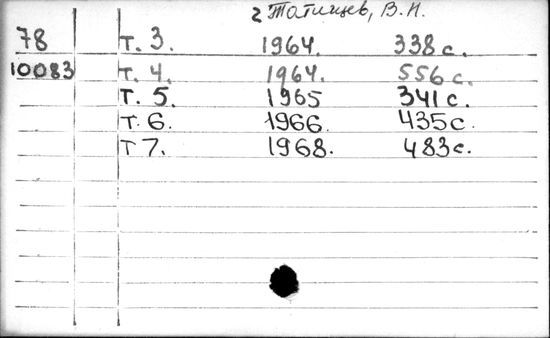 2 Татищев, В.Н.
78 т. 3. 1964. 338 с.
10083 т. 4. 1964. 556 с.
т. 5. 1965 341 с.
т. 6. 1966. 435 с.
т 7. 1968. 483 с.